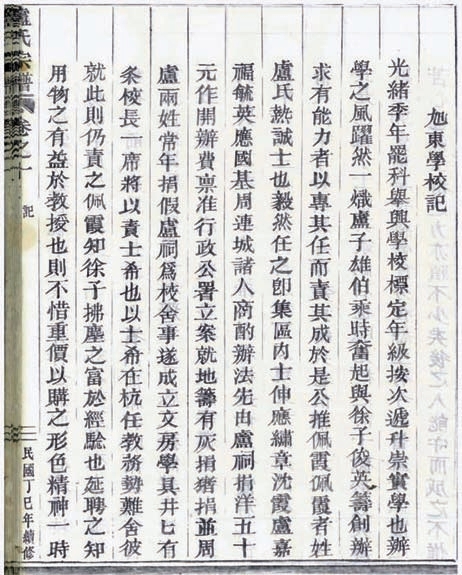 旭東學校記
光緒季年罷科舉興學校標定年級按次遞升崇實學也辦
學之風躍然一熾盧子雄伯乘時奮起與徐子俊英籌創辦
求有能力者以專其任而責其成於是公推佩霞佩霞者姓
盧氏熱誠士也毅然任之卽集區內士伸應繡章沈霞盧嘉
福毓英應國基周連城諸人商酌辦法先由盧祠捐洋五十
元作開辦費稟准行政公署立案就地籌有灰捐猪捐並周
盧兩姓常年捐假盧祠爲校舍事遂成立文房學具井匕有
条校長一席將以責士希也以士希在杭任教務勢難舍彼
就此則仍責之佩霞知徐子拂塵之富於經騐也延聘之知
用物之有益於教授也則不惜重價以購之形色精神一時
盧氏宗譜
卷之十
記
民國丁巳年續修